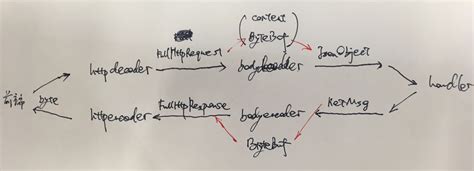 context
FullHttpRequest
ByteBuf
JsonObject
httpdecoder
bodydecoder
前端
byte
handler
httpencoder
FullHttpResponse
bodyencoder
RetMsg
ByteBuf